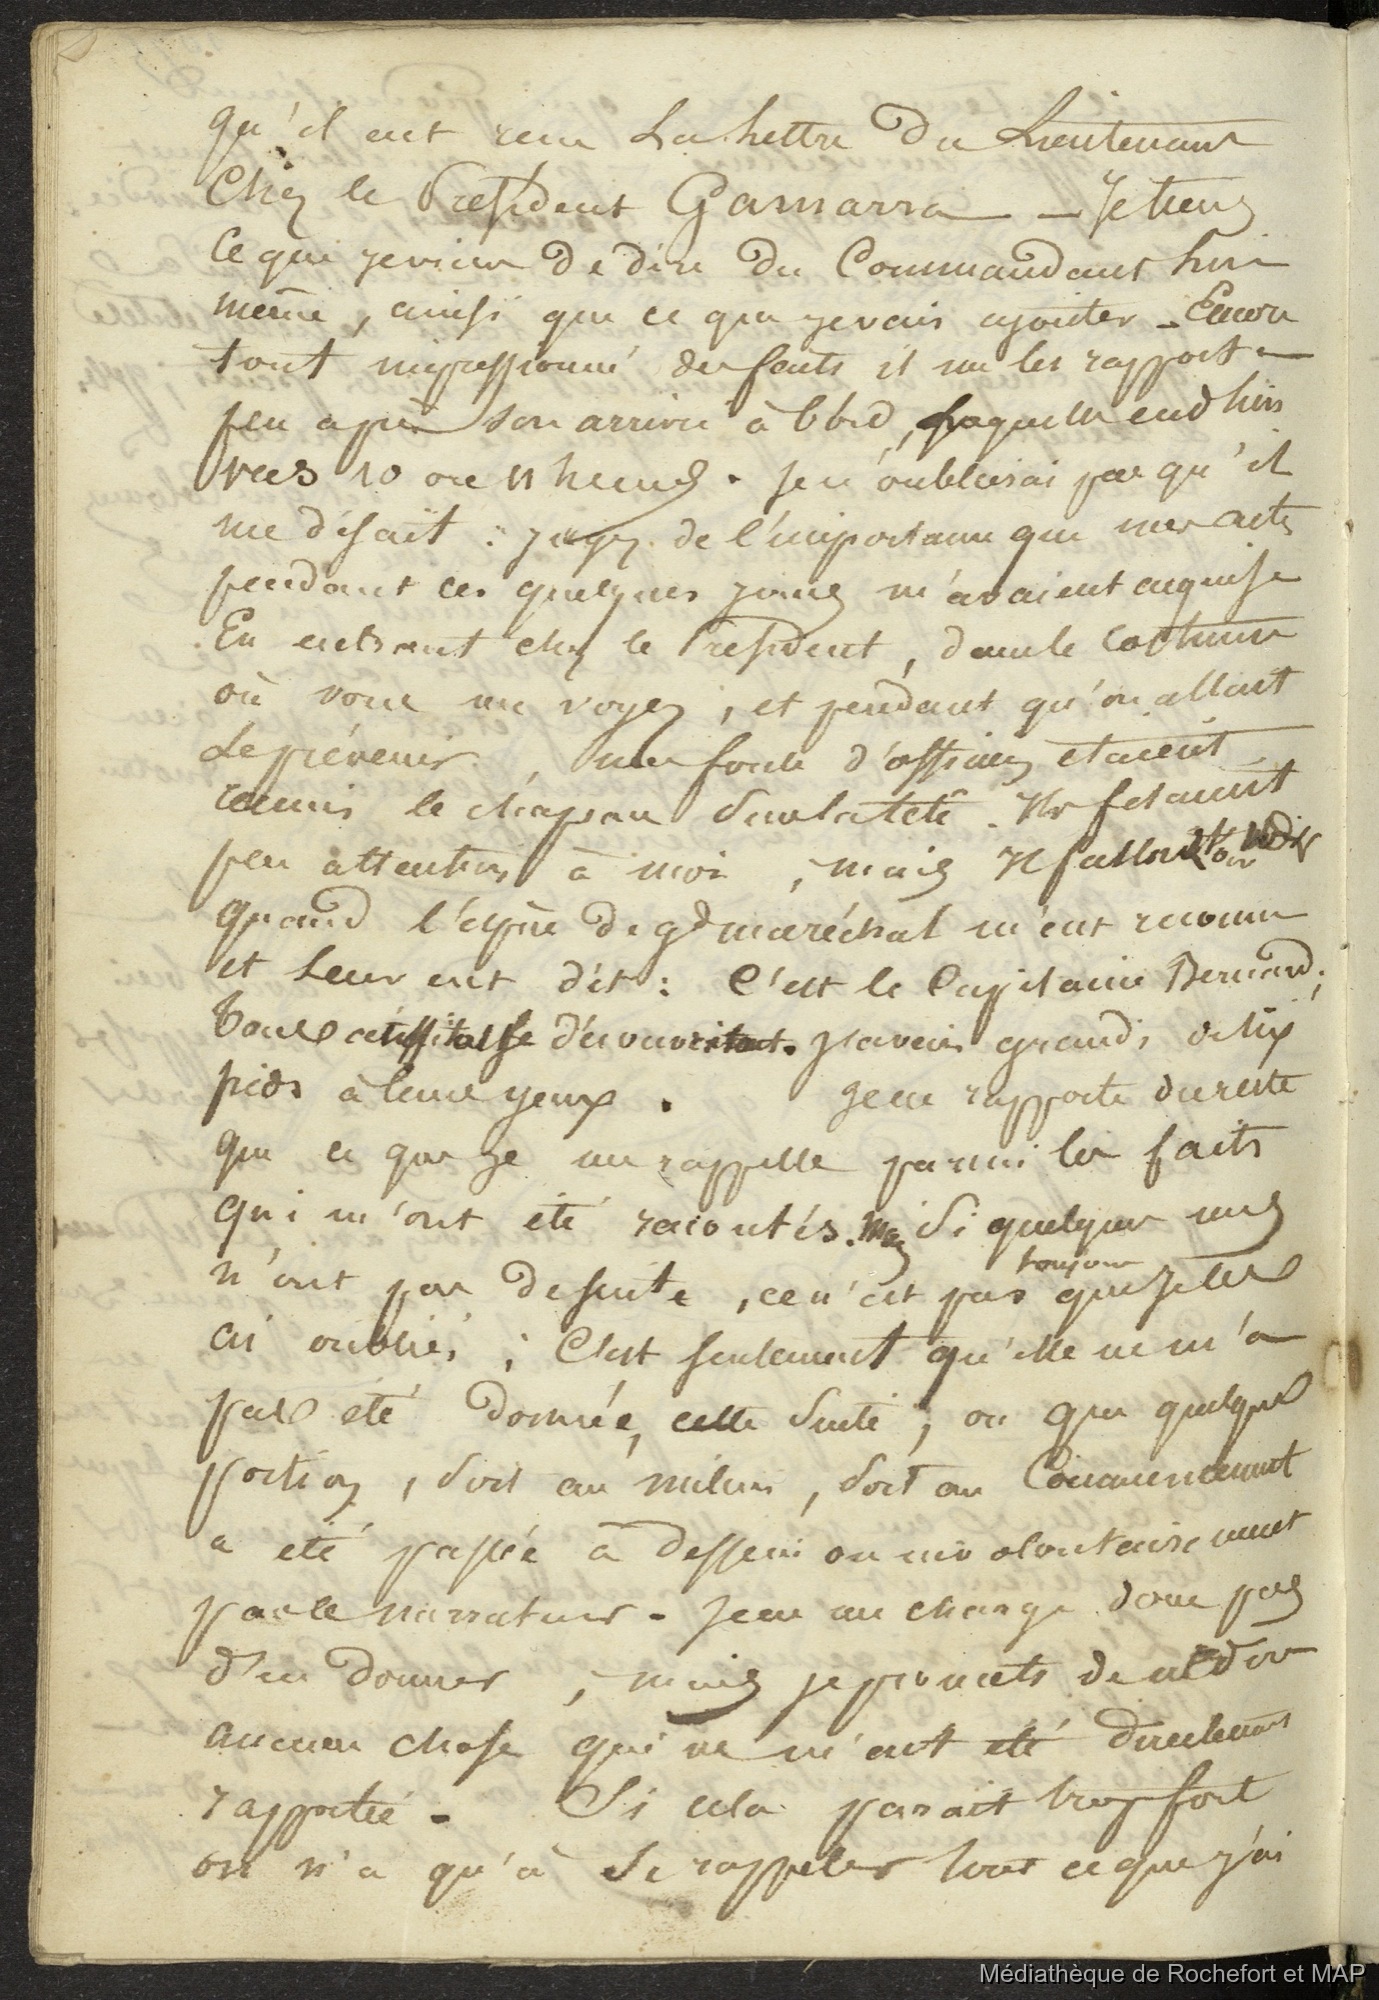 qu'il eut reçu la lettre du Lieutenant
Chez le Président Gamarra — Je tiens
Ce que je viens de dire du Commandant lui
meme, ainsi que ce que je vais ajouter. Encore
tout impressionné des faits il me les rapporta
peu après son arrivée à bord, laquelle eut lieu
vers 10 ou 11 heures. Je n'oublierai pas qu'il
me disait : jugez de l'importance que mes actes
pendant ces quelques jours m'avaient acquise
En entrant chez le Président, dans le costume
où vous me voyez, et pendant qu'on allait
le prévenir, une foule d'officiers etaient
reunis le chapeau sur la tête. Ils fesaient
peu attention à moi, mais il fallait voir
quand l'espèce de gd maréchal m'eut reconnu
et leur eut dit : C'est le Capitaine Bernard,
Tous se découvrirent. J'avais grandi de dix
pieds à leurs yeux. Je ne rapporte du reste
que ce que je me rappelle parmi les faits
qui m'ont été racontés. Mais Si quelques uns
n'ont pas de suite, ce n'est pas toujours que je les
ai oubliés ; C'est seulement qu'elle ne m'a
pas été donnée, cette suite, ou que quelque
portion, soit au milieu, soit au Commencement
a été passée à dessein ou involontairement
par le narrateur. Je ne me charge donc pas
d'en donner, mais je promets de ne dire
aucune chose qui ne m'ait été directement
rapportée. Si cela parait trop fort
on n'a qu'à se rappeler tout ce que j'ai
Médiathèque de Rochefort et MAP